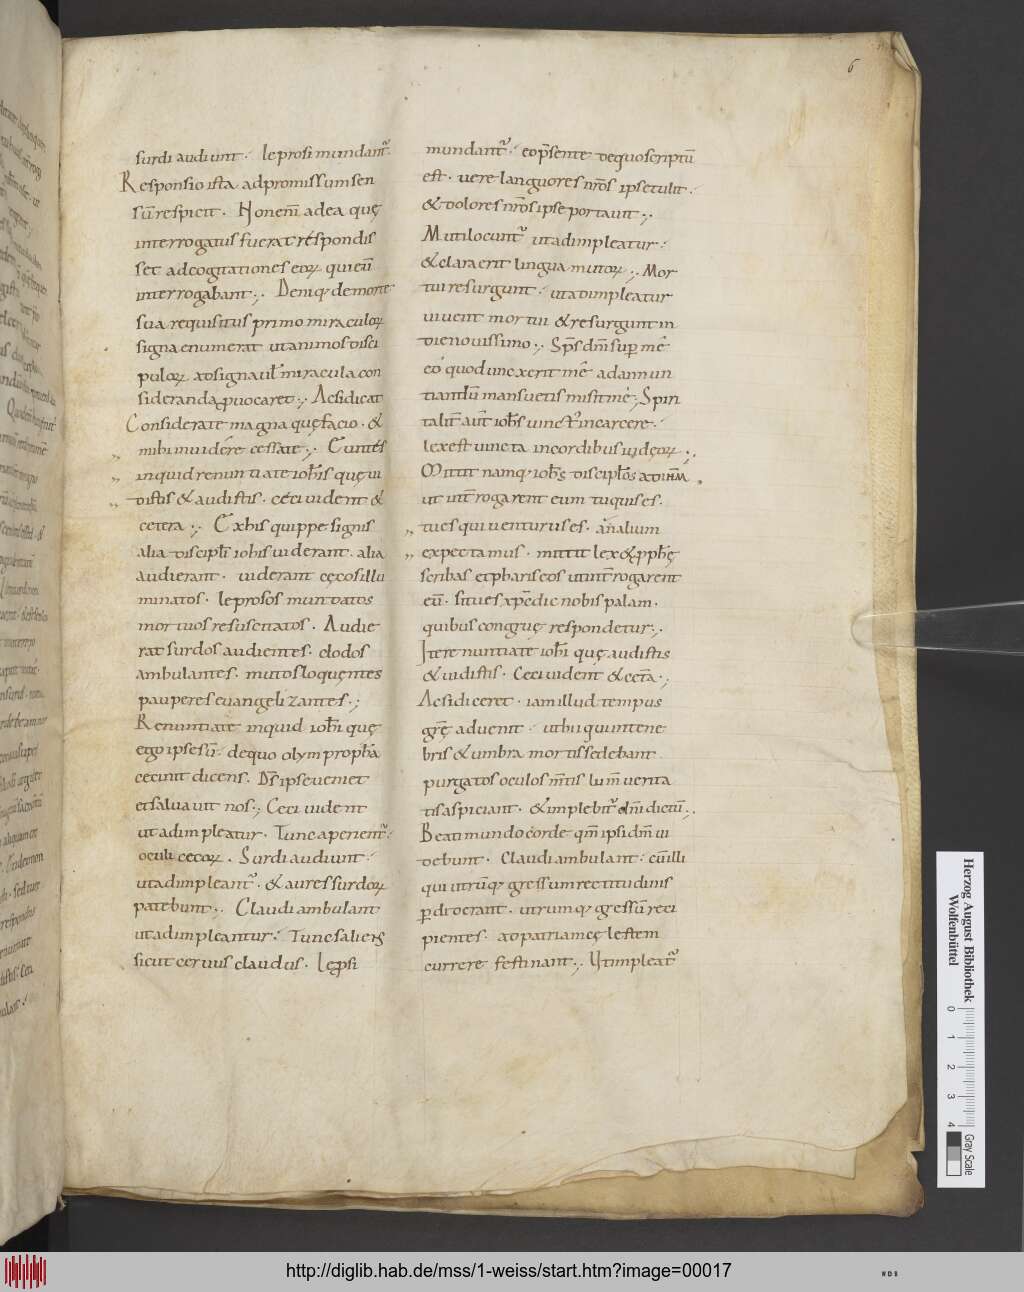 6
surdi audiunt. leprosi mundant᷑.
Responsio ista ad promissum sen
sū respicit. Non enī ad ea quę
interrogatus fuerat respondis
set ad cogitationes eoꝝ qui eū
interrogabant; Deniq; de morte
sua requisitus primo miraculoꝝ
signa enumerat ut animos disci
puloꝝ ad signa uł miracula con
sideranda ꝓuocaret; Ac si dicat
Considerate magna quę facio. &
mihi inuidere cessate; Euntes
inquid renuntiate iohis quę ui
distis & audistis. ceci uident &
cetera; Ex his quippe signis
alia discipłi iohis uiderant. alia
audierant. uiderant cęcos illu
minatos. leprosos mundatos
mortuos resuscitatos. Audie
rat surdos audientes. clodos
ambulantes. mutos loquentes
pauperes euangelizantes;
Renuntiate inquid iohi quę
ego ipse sū. de quo olym prophā
cecinit dicens. Ds̄ ipse ueniet
et saluauit nos; Ceci uident
ut adimpleatur. Tunc aperient᷑
oculi cecoꝝ. Surdi audiunt.
ut adimpleant᷑. & aures surdoꝝ
patebunt; Claudi ambulant
ut adimpleantur. Tunc saliens
sicut ceruus claudus. Lepsi
mundant᷑. eo p̄sente de quo scriptū
est. uere languores nr̄os ipse tulit.
& dolores nr̄os ipse portauit;
Muti locunt᷑ ut adimpleatur.
& clara erit lingua mutoꝝ; Mor
tui resurgunt. ut adimpleatur
uiuent mortui & resurgunt in
die nouissimo; Sp̄s dn̄i sup mē
eo quod unexerit mē ad annun
tiandū mansuetis misit mē; Spiri
talit̄ aut̄ iohs uinct᷑ in carcere.
lex est uincta in cordibus iudęoꝝ;
Mittit namq; iohs discipłos ad dnm
ut int̄rogarent eum tu quis es.
tu es qui uenturus es. an alium
expectamus. mittit lex & pphę
scribas et phariseos ut int̄rogarent
eū. si tu es xp̄e dic nobis palam.
quibus congruę respondetur;
Ite renuntiate iohi quę audistis
& uidistis. Ceci uident & cet̄a;
Ac si diceret. iam illud tempus
gr̄ę aduenit. ut hii qui in tene
bris & umbra mortis sedebant
purgatos oculos m̄tis lum̄ uerita
tis aspiciant. & implebit᷑ dn̄i dictū;
Beati mundo corde qm̄ ipsi dm̄ ui
debunt. Claudi ambulant. cū illi
qui utrūq; gressum rectitudinis
ꝑdiderant. utrumq; gressū reci
pientes. ad patriam cęlestem
currere festinant; Ut impleat᷑
Herzog August Bibliothek
Wolfenbüttel
0 1 2 3 4
Gray Scale
http://diglib.hab.de/mss/1-weiss/start.htm?image=00017